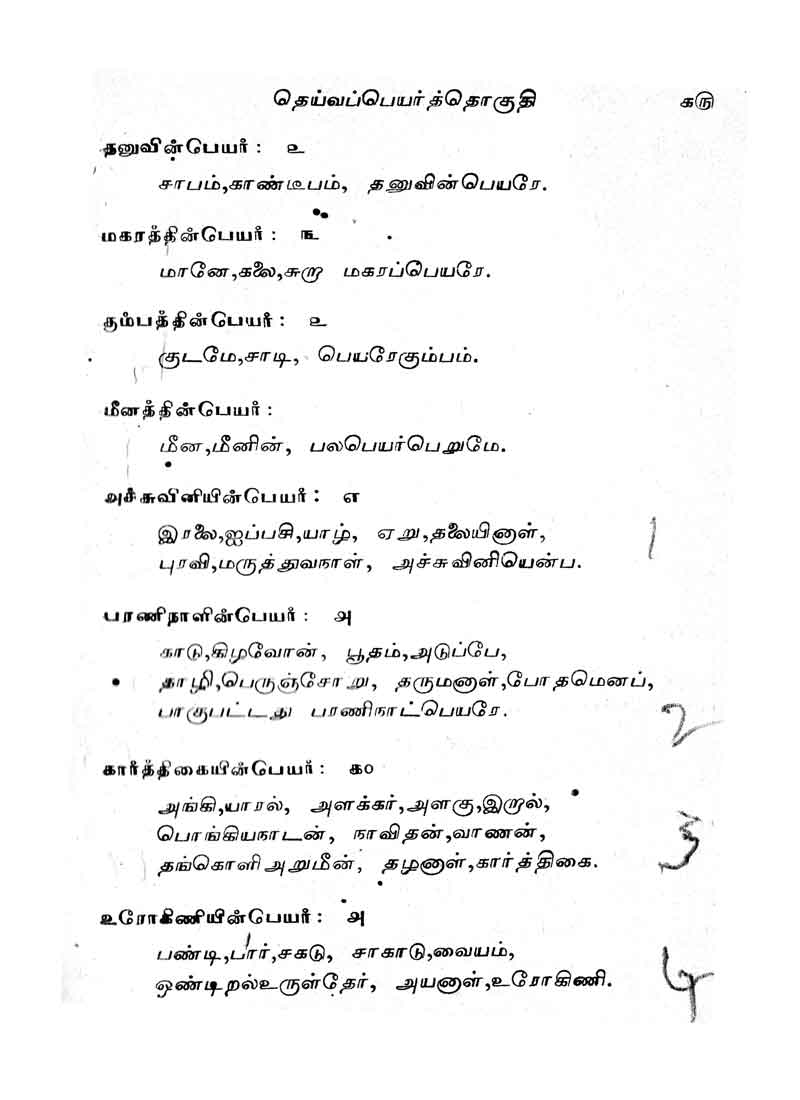 தெய்வப்பெயர்த்தொகுதி கரு
தனுவின்பெயர் : உ
சாபம்,காண்டீபம், தனுவின்பெயரே.
மகரத்தின்பெயர் : ௩
மானே,கலை,சுறா மகரப்பெயரே.
கும்பத்தின்பெயர் : உ
குடமே,சாடி, பெயரேகும்பம்.
மீனத்தின்பெயர் :
மீன,மீனின், பலபெயர்பெறுமே.
அச்சுவினியின்பெயர் : எ
இரலை,ஐப்பசி,யாழ், ஏறு,தலையினாள்,
புரவி,மருத்துவநாள், அச்சுவினியென்ப.
பரணிநாளின்பெயர் : அ
காடு,கிழவோன், பூதம்,அடுப்பே,
தாழி,பெருஞ்சோறு, தருமனாள்,போதமெனப்,
பாகுபட்டது பரணிநாட்பெயரே.
கார்த்திகையின்பெயர் : க௦
அங்கி,யாரல், அளக்கர்,அளகு,இறால்,
பொங்கியநாடன், நாவிதன்,வாணன்,
தங்கொளிஅறுமீன், தழனாள்,கார்த்திகை.
உரோகிணியின்பெயர் : அ
பண்டி,பார்,சகடு, சாகாடு,வையம்,
ஒண்டிறல்உருள்தேர், அயனாள்,உரோகிணி.
1
2
3
4